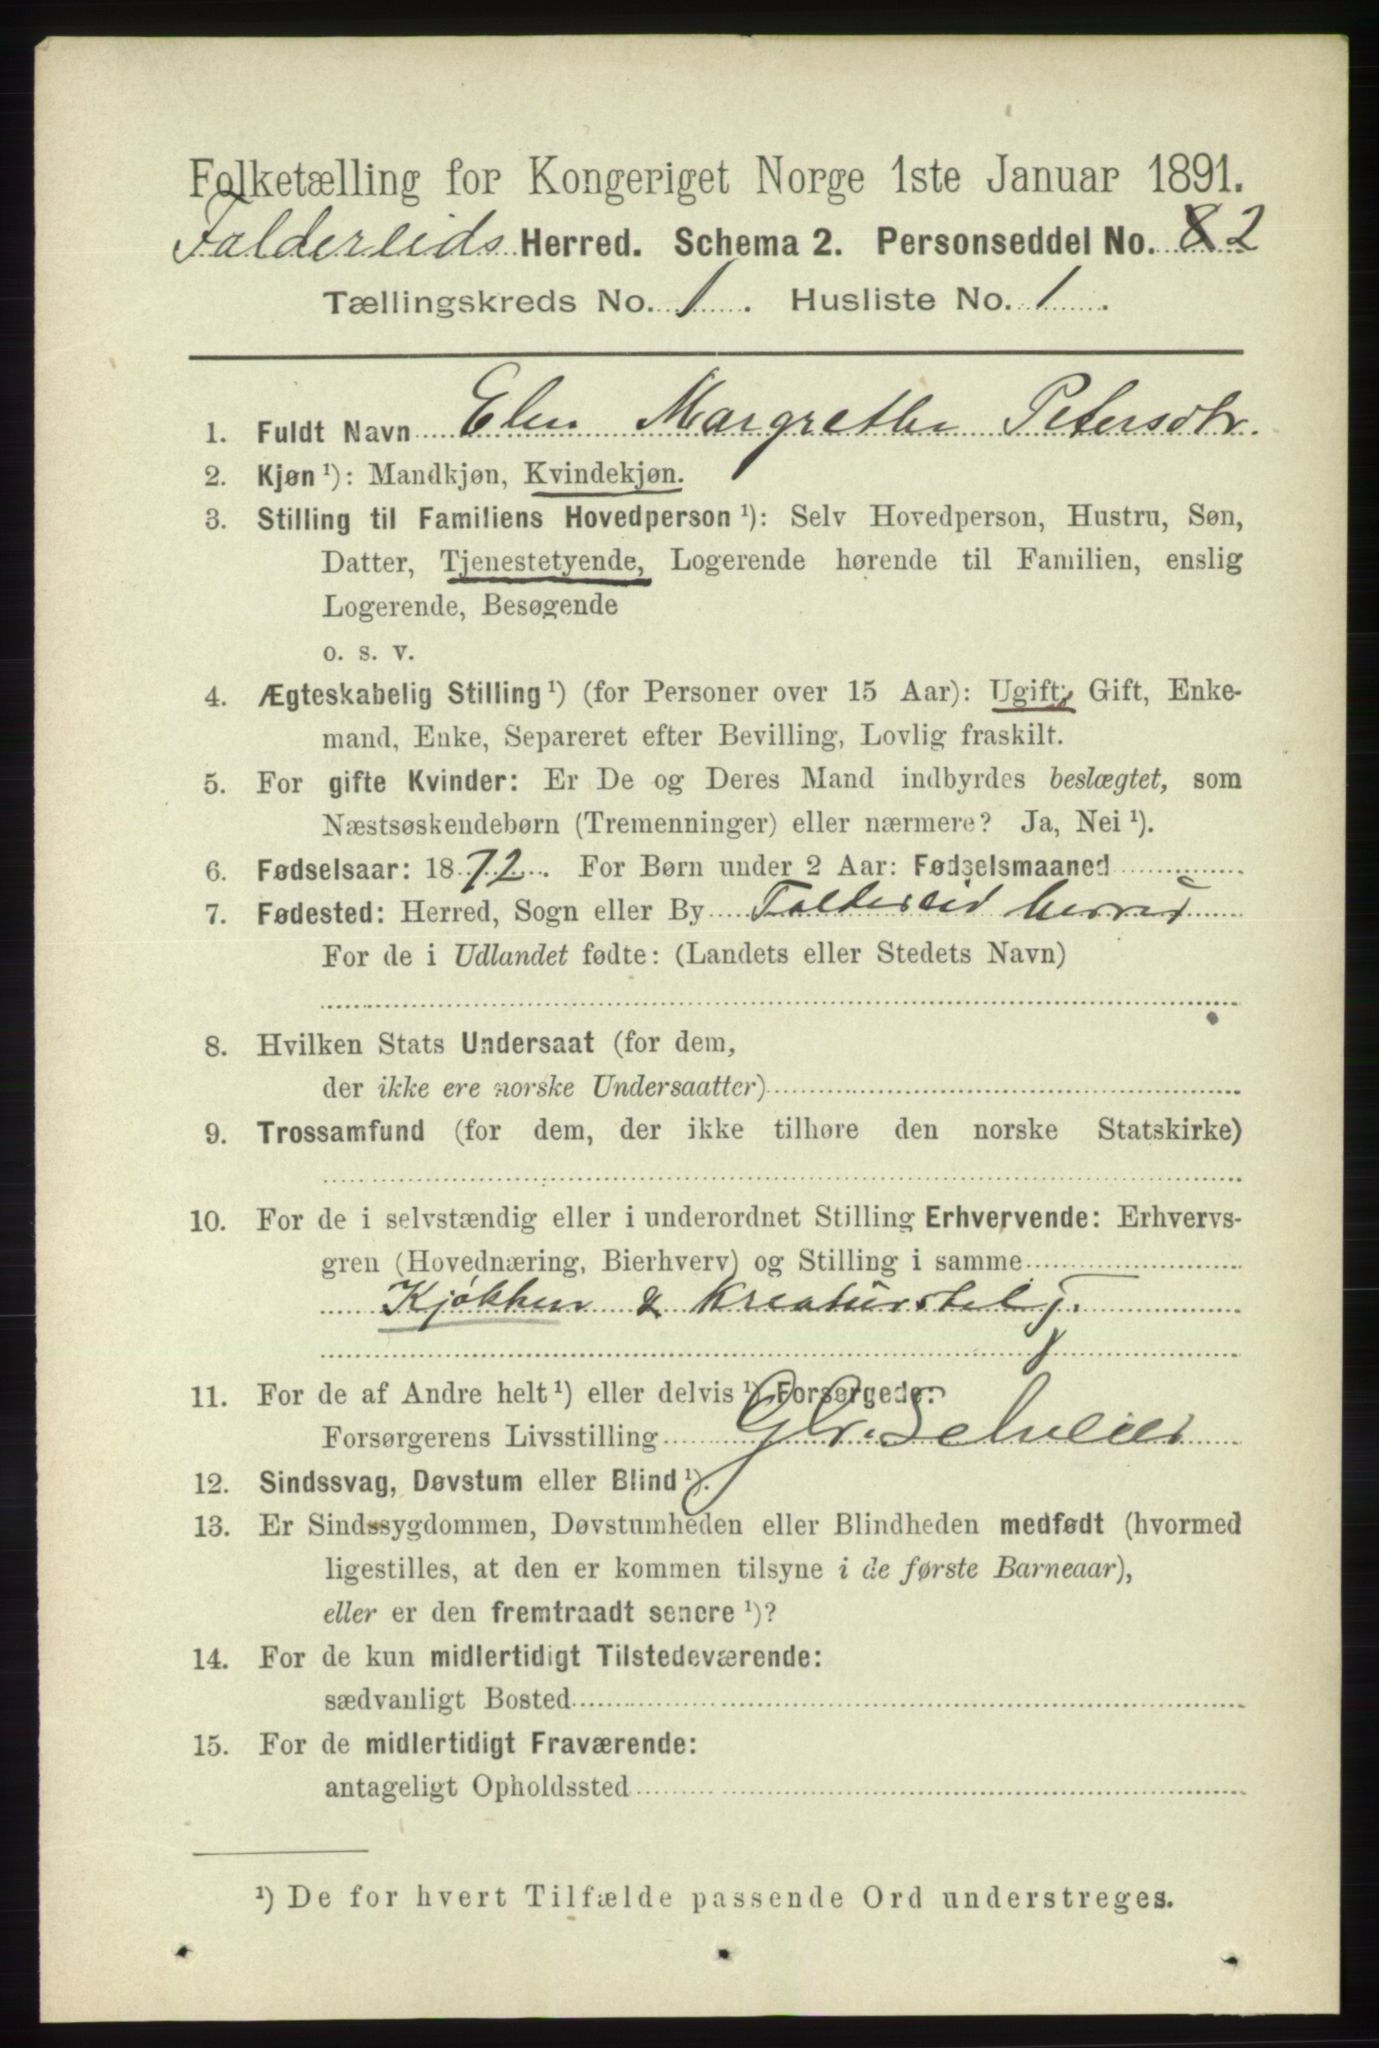 Folketælling for Kongeriget Norge 1ste Januar 1891.
Foldereids Herred. Schema 2. Personseddel No. 2
Tællingskreds No. 1. Husliste No. 1.
1. Fuldt Navn Elen Margrethe Petersdtr.
2. Kjøn ¹): Mandkjøn, Kvindekjøn.
3. Stilling til Familiens Hovedperson ¹): Selv Hovedperson, Hustru, Søn,
Datter, Tjenestetyende, Logerende hørende til Familien, enslig
Logerende, Besøgende
o. s. v.
4. Ægteskabelig Stilling ¹) (for Personer over 15 Aar): Ugift, Gift, Enke-
mand, Enke, Separeret efter Bevilling, Lovlig fraskilt.
5. For gifte Kvinder: Er De og Deres Mand indbyrdes beslægtet, som
Næstsøskendebørn (Tremenninger) eller nærmere? Ja, Nei ¹).
6. Fødselsaar: 1872. For Børn under 2 Aar: Fødselsmaaned
7. Fødested: Herred, Sogn eller By Foldereid herred
For de i Udlandet fødte: (Landets eller Stedets Navn)
8. Hvilken Stats Undersaat (for dem,
der ikke ere norske Undersaatter)
9. Trossamfund (for dem, der ikke tilhøre den norske Statskirke)
10. For de i selvstændig eller i underordnet Stilling Erhvervende: Erhvervs-
gren (Hovednæring, Bierhverv) og Stilling i samme
Kjøkken & kreaturstel
11. For de af Andre helt ¹) eller delvis ¹) Forsørgede:
Forsørgerens Livsstilling
12. Sindssvag, Døvstum eller Blind ¹).
13. Er Sindssygdommen, Døvstumheden eller Blindheden medfødt (hvormed
ligestilles, at den er kommen tilsyne i de første Barneaar),
eller er den fremtraadt senere ¹)?
14. For de kun midlertidigt Tilstedeværende:
sædvanligt Bosted
15. For de midlertidigt Fraværende:
antageligt Opholdssted
¹) De for hvert Tilfælde passende Ord understreges.